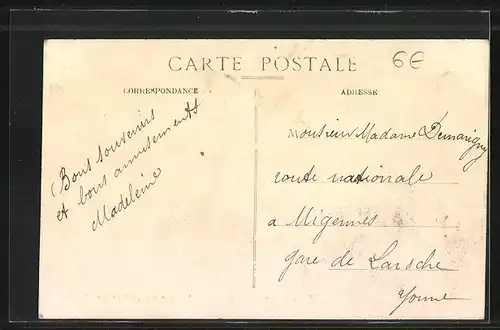 CARTE POSTALE
6€
CORRESPONDANCE
ADRESSE
Bons souvenirs
et bons amusements
Madeleine
Monsieur Madame Demarigny
route nationale
a Migennes
gare de Laroche
Yonne